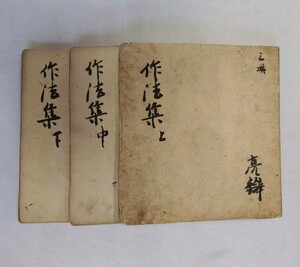 作法集上
三冊
亮辯
作法集中
作法集下